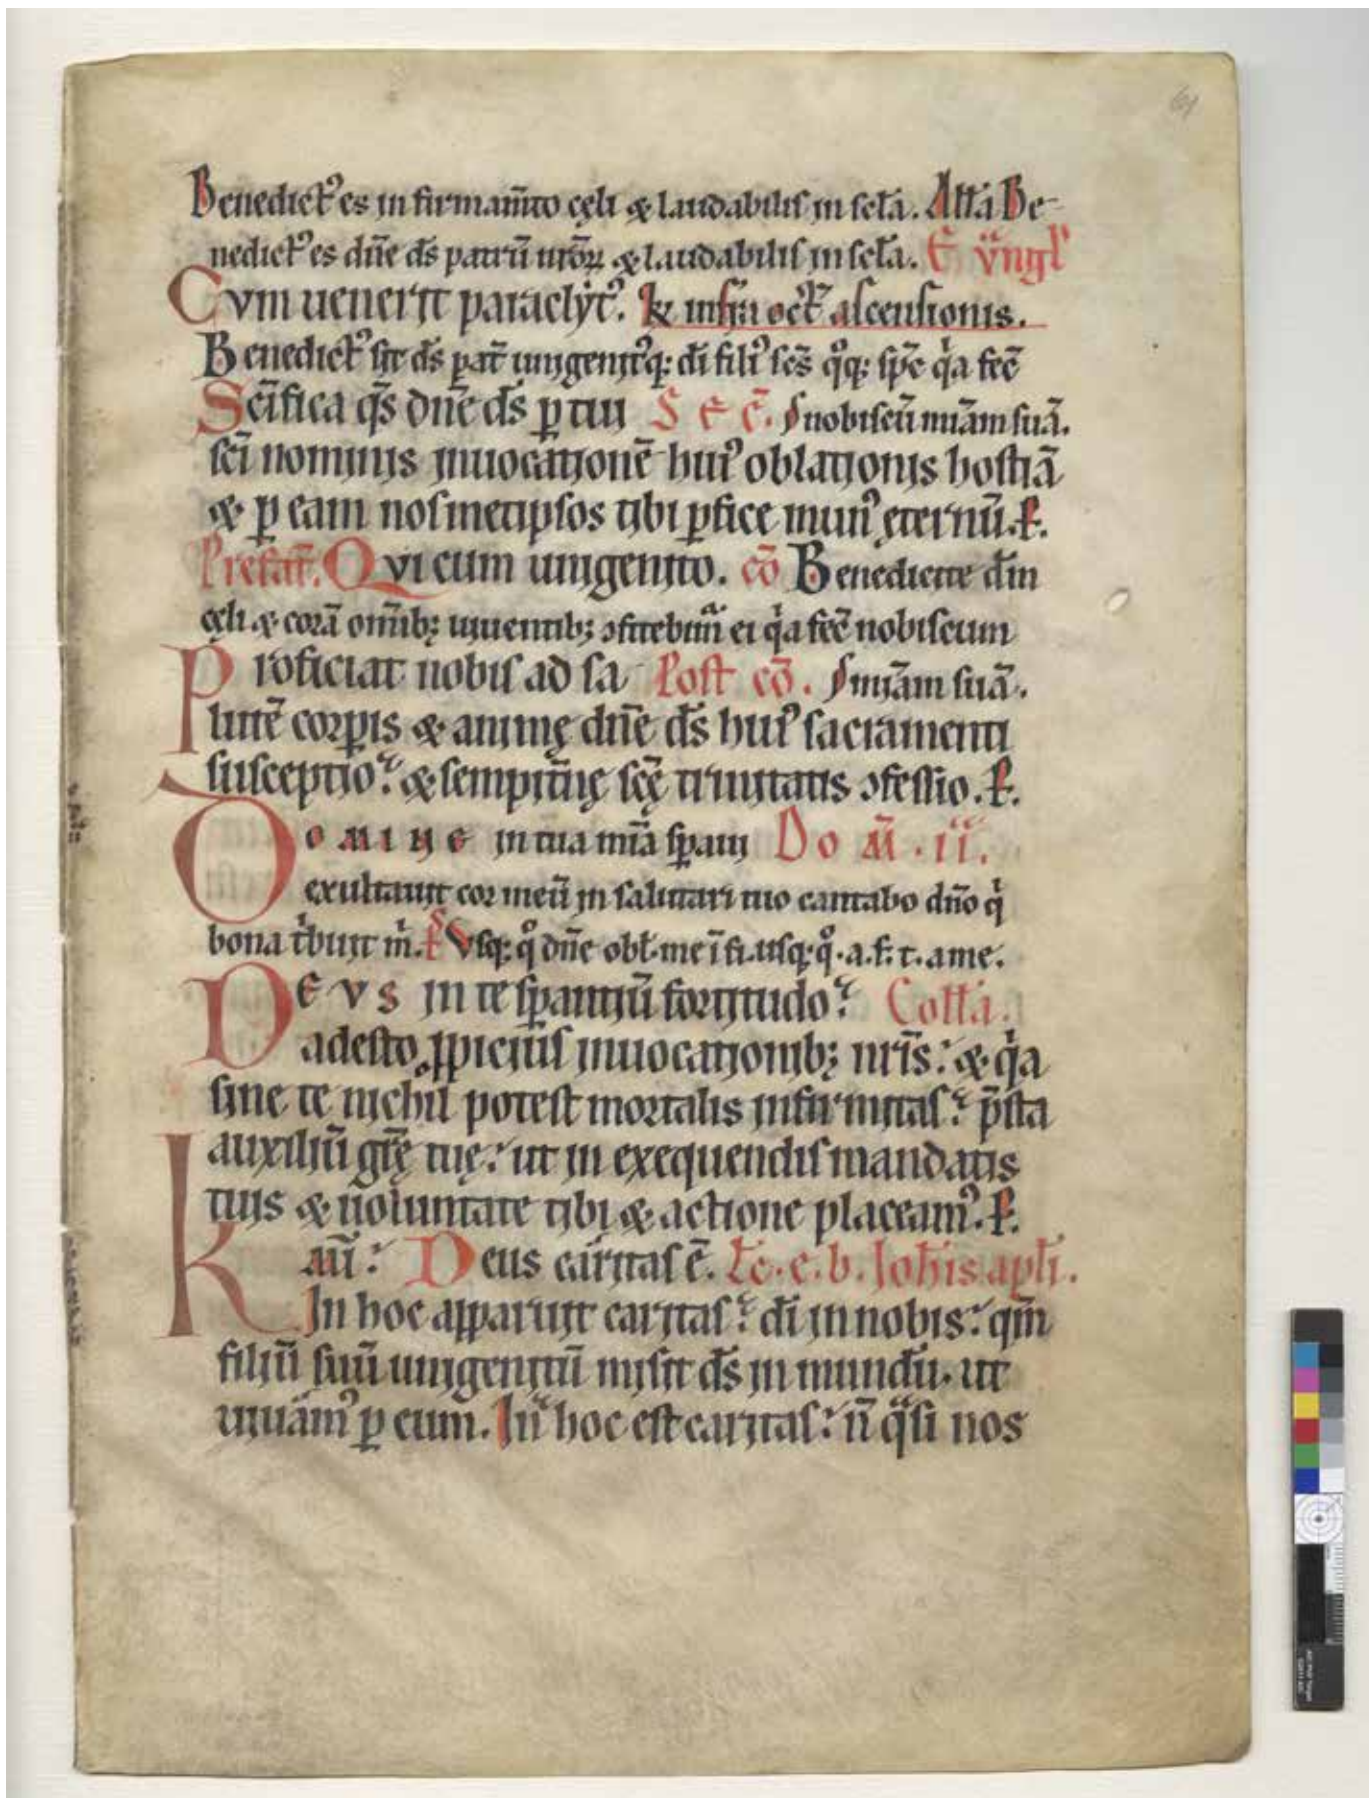 61
Benedict᾽ es in firmam̅to cęli & laudabilis in sc̅la. Alła Be-
nedict᾽ es dn̅e ds̅ patrū nr̅oꝝ & laudabilis in sc̅la. Eu̅ngl̅
Cvm uenerit paraclẏt᾽. Re᾽ infra oct̅ ascensionis.
Benedict᾽ sit ds̅ pat̅ unigenit᾽q; di̅ fili᾽ sc̅s qͦq; sp̅c qͥa fec̅
Sc̅ifica qs̅ dn̅e ds̅ ꝑ tui S E C̅. nobiscū mi̅am suā.
sc̅i nominis inuocationē hui᾽ oblationis hostiā
& ꝑ eam nosmetipsos tibi ꝑfice mun᾽ ęternū. P.
Prefat̅. Qvi cum unigenito. cō Benedicite dm̅
cęli & corā om̅ib; uiuentib; ɔfitebim̅ ei qͥa fec̅ nobiscum
Proficiat nobis ad sa Post cō. mi̅am suā.
lutē corꝑis & animę dn̅e ds̅ hui᾽ sacramenti
susceptio. & sempit̅nę sc̅ę trinitatis ɔfessio. P.
Domine in tua mi̅a sꝑaui Do M̅. ii.
exultauit cor meū in salutari tuo cantabo dn̅o qͥ
bona tͥbuit m̅. Vsq; qͦ dn̅e obl̅. me ī fi. usq; qͦ. a. f. t. a me.
Devs in te sꝑantiū fortitudo. Colła.
adesto ꝓpicius inuocationib; nr̅is. & qͥa
sine te nichil potest mortalis infirmitas. p̅sta
auxiliū gr̅ę tuę. ut in exequendis mandatis
tuis & uoluntate tibi & actione placeam᾽. P.
Kaū. Deus caritas ē. Lc̅. e. b. Ioh̅is apl̅i.
In hoc apparuit caritas di̅ in nobis. qm̅
filiū suū unigenitū misit ds̅ in mundū. ut
uiuam᾽ ꝑ eum. In hoc est caritas. n̅ qͣsi nos